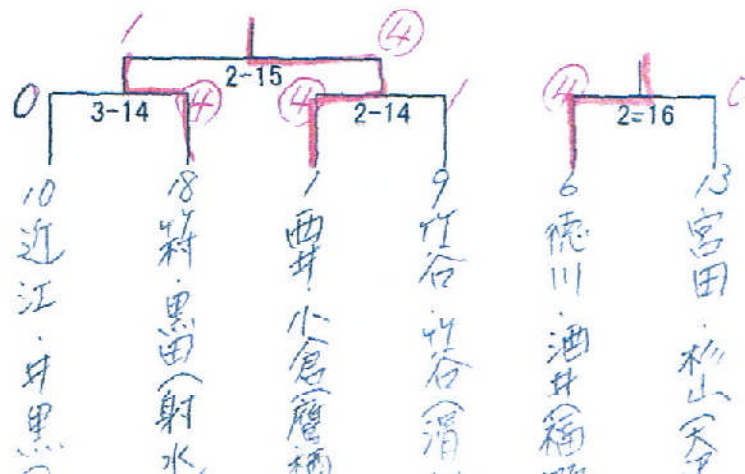 1 ④
2-15
0 3-14 ④ ④ 2-14 1 ④ 2=16 0
10 近江・井黒
18 黒田(射水
1 酉井・小倉(鷹栖
9 竹谷・竹谷(滑
6 徳川・酒井(福野
13 宮田・杉山(大